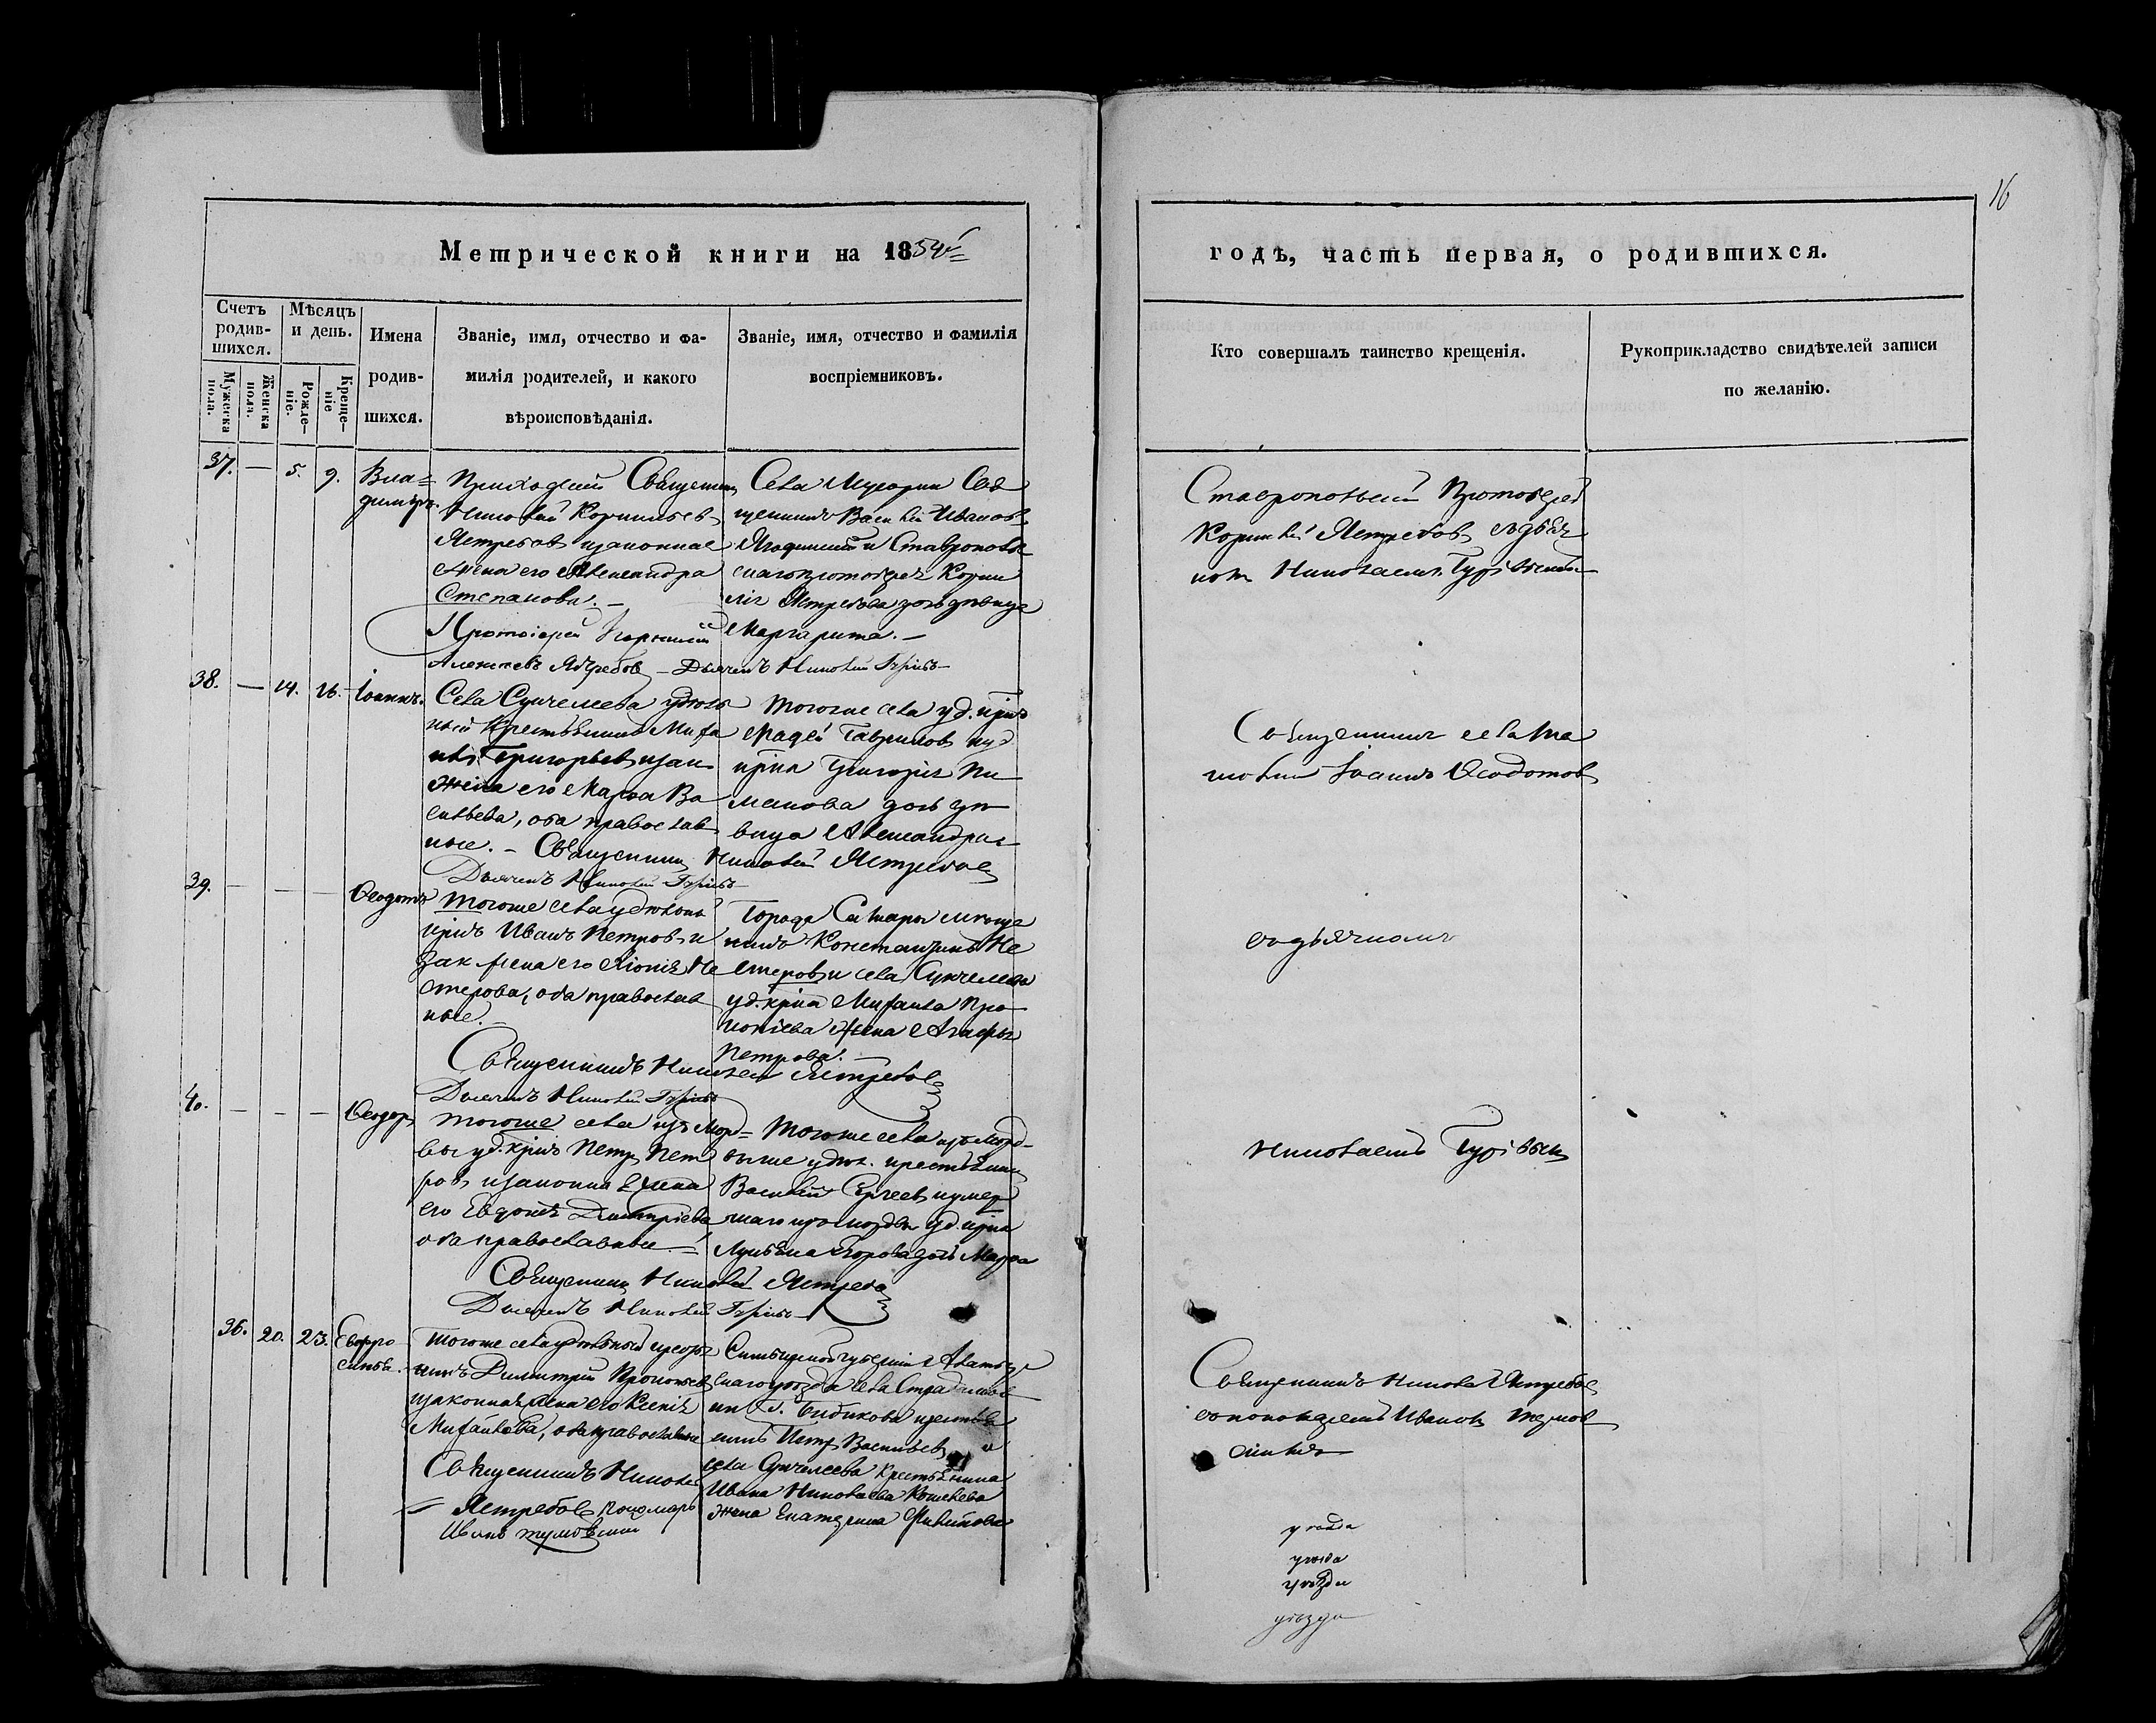 16
Метрической книги на 1854
годъ, часть первая, о родившихся.
Счетъ родив-шихся.
Мужеска пола.
Женска пола.
Мѣсяцъ и день.
Рожде-ніе.
Креще-ніе
Имена родив-шихся.
Званіе, имя, отчество и фа-
милія родителей, и какого
вѣроисповѣданія.
Званіе, имя, отчество и фамилія
воспріемниковъ.
Кто совершалъ таинство крещенія.
Рукоприкладство свидѣтелей записи
по желанію.
37. — 5. 9.
Вла=
димиръ.
Николай Корнильев
Ястребов и законная
жена его Александра
Степанова. —
Протоіерей Корнилій
Алексеевъ Ястребов — Дьячекъ Николай Гурьевъ
Села Мусорки Свя
щенникъ Василій Иванов
Ягодинский и Ставрополь
скаго протоіерея Корни
лія Ястребова дочь девица
Маргарита. —
Ставропольский Протоіерей
Корнилій Ястребов съ дьяч
ком Николаемъ Гурьевым
38. — 14. 16. Іоаннъ.
Села Сунчелеева удель
ный крестьянинъ Миха
илъ Григорьев и зак
жена его Марѳа Ва
сильева, оба православ
ные. — Священник Николай Ястребов
Дьячекъ Николай Гурьевъ
Тогоже села уд. кр-нъ
Фадей Гаврилов и уд
кр-на Григорія
дочь де
вица Александра
Священникъ села
Іоаннъ Ѳеодотов
39. — — — Ѳеодотъ
Тогоже села удельный
кр-нъ Иванъ Петров и
зак жена его Ксенія Не
стерова, оба православ
ные.
Священникъ Николай Ястребов
Дьячекъ Николай Гурьевъ
Города Самары меща
нинъ Константинъ Не
стеров и села Сунчелеева
уд. кр-на Михаила Про
копіева жена Агафья
Петрова.
съ дьячкомъ
40. — — — Ѳеодор
Тогоже села изъ Морд=
вы уд. кр-нъ Петр Пет
ров и законная жена
его Евдокія Димитріева
оба православные —
Священник Николай Ястребов
Дьячекъ Николай Гурьевъ
Тогоже села изъ Морд-
вы же удел. крестьянин
Василий Сергеев и умер
шаго изъ мордвы уд. кр-на
Лукьяна Егорова дочь Марѳа
Николаемъ Гурьевым
36. 20. 23. Евфро
синья.
Тогоже села удельный кресть
нинъ Димитрій Прокопьев
и законная жена его Ксенія
Михайлова, оба православные
Священникъ Николай
Ястребов, Пономарь
Иванъ
Симбирской губерніи Алатыр
скаго уезда села
Бибикова крестья
нинъ Петр Васильев и
села Сунчелеева Крестьянина
Ивана Николаева
жена Екатерина
Священникъ Николай Ястребов
с пономарем Иваном
уезда
уезда
уезда
уезда